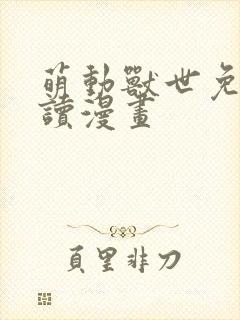 萌動獸世免
讀漫畫
頁里非刀